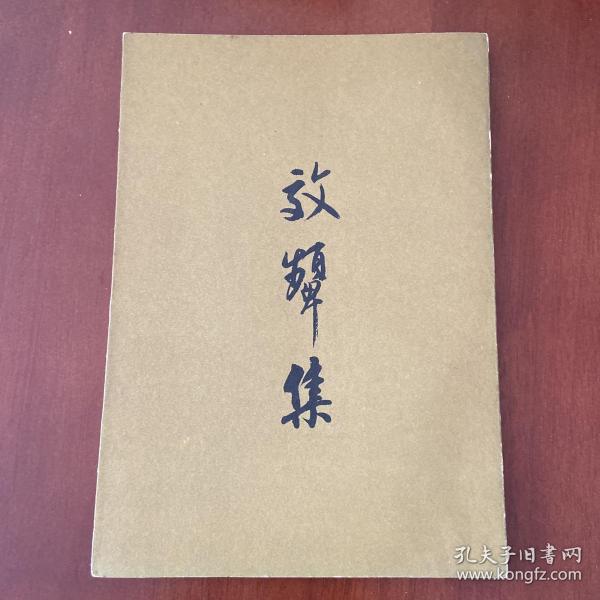 效颦集
孔夫子旧書网
www.kongfz.com